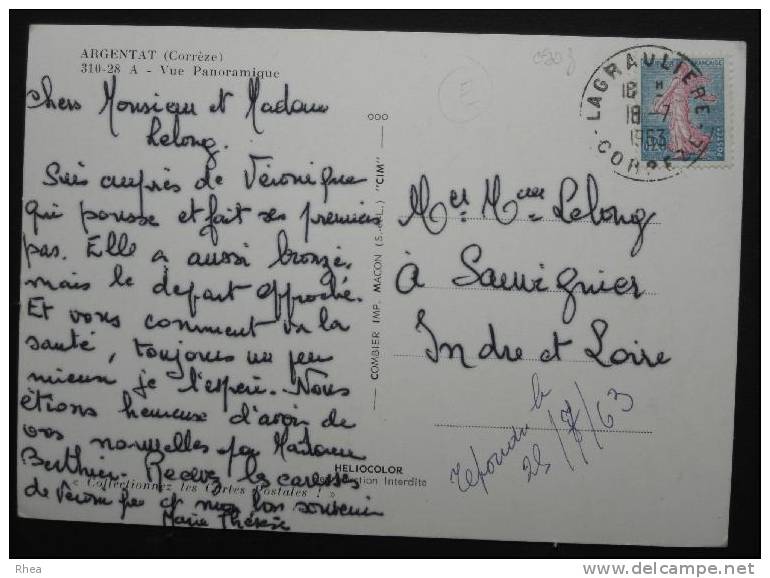 ARGENTAT (Corrèze)
310-28 A - Vue Panoramique
Chers Monsieur et Madame
Lelong.
Suis auprès de Véronique
qui pousse et fait ses premiers
pas. Elle a aussi bronzé,
mais le départ approche.
Et vous comment va la
santé, toujours un peu
mieux je l'espère. Nous
étions heureuse d'avoir de
vos nouvelles par Madame
Berthier. Recevez les caresses
de Véronique et mes bon souvenir
Marie Thérèse
« Collectionnez les Cartes Postales ! »
HELIOCOLOR
Reproduction Interdite
COMBIER IMP. MACON (S.-&-L.) "CIM"
LAGRAULIERE
18 H
18 -7
1963
CORREZE
POSTES
Mr Mme Lelong
à Sauvignier
Indre et Loire
répondu le
25/7/63
Rhea
www.delcampe.net